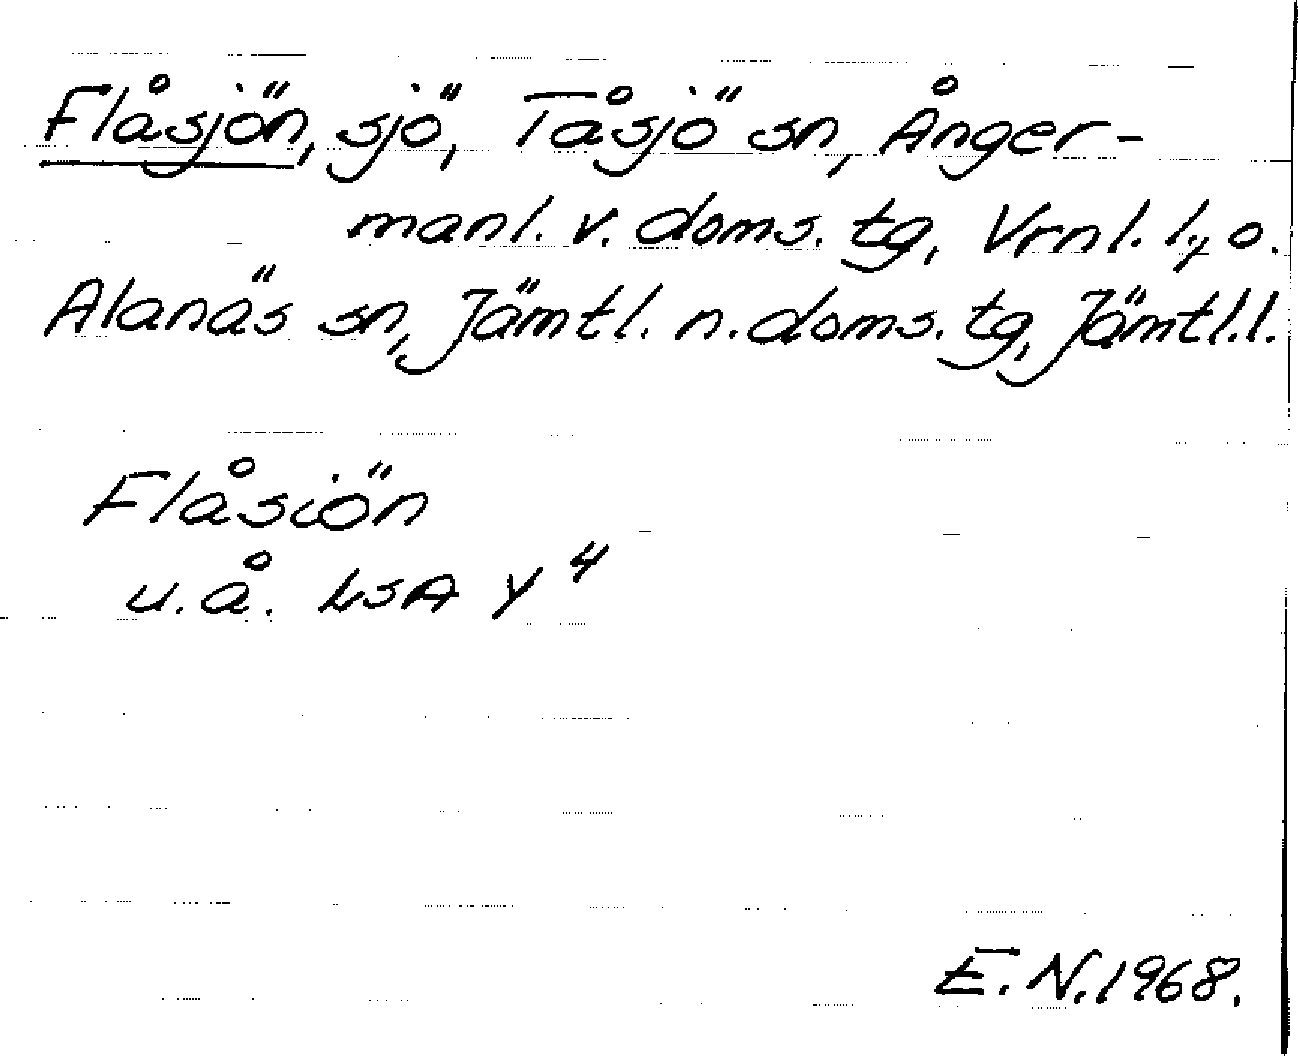 Flåsjön, sjö, Tåsjö sn, Ånger-
manl. v. doms. tg, Vrnl. l., o.
Alanäs sn, Jämtl. n. doms. tg, Jämtl. l.
Flåsiön
u.å. LSA Y 4
E. N. 1968.